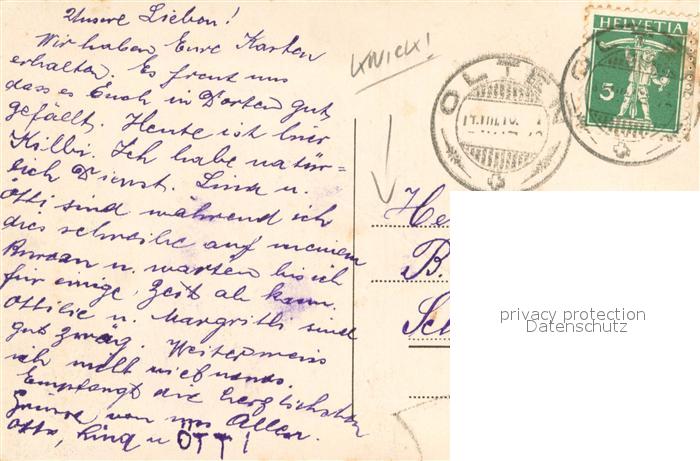 Unsere Lieben!
Wir haben Eure Karten
erhalten. Es freut uns
dass es Euch in Dorten gut
gefällt. Heute ist hier
Kilbi. Ich habe natür=
lich Dienst. Lina u.
Otti sind während ich
dies schreibe auf meinem
Bureau u. warten bis ich
für einige Zeit ab kann.
Ottilie u. Margritli sind
gut zwäg. Weiter weiss
ich nicht viel neues.
Empfangt die herzlichsten
Grüsse von uns Allen.
Otto, Lina u OTTI
KNICK!
HELVETIA
5
OLTEN
He
B.
Sch
privacy protection
Datenschutz